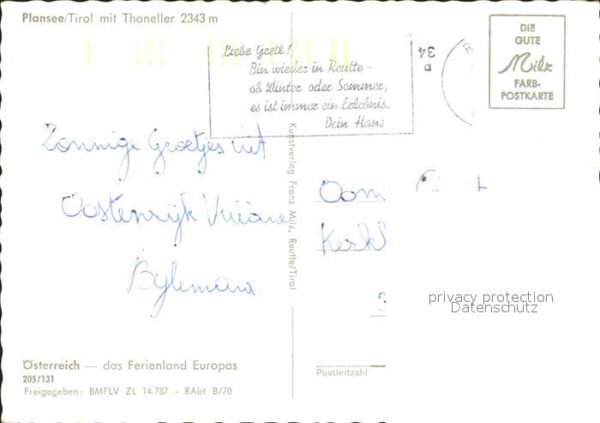 Plansee/Tirol mit Thaneller 2343 m
Liebe Gretl!
Bin wieder in Reutte -
ob Winter oder Sommer,
es ist immer ein Erlebnis.
Dein Hans
34
DIE
GUTE
Milz
FARB-
POSTKARTE
Zonnige Groetjes uit
Oostenrijk
Kunstverlag Franz Milz, Reutte/Tirol
Oom
Kerk
privacy protection
Datenschutz
Österreich — das Ferienland Europas
205/131
Freigegeben: BMFLV ZL 14.787 - RAbt B/70
Postleitzahl